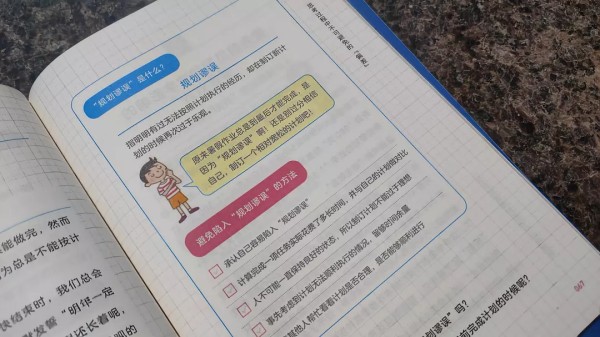 思考过程中不可避免的“误判”
“规划谬误”是什么？
规划谬误
指明明有过无法按照计划执行的经历，却在制订新计
划的时候再次过于乐观。
原来暑假作业总是到最后才能完成，是
因为“规划谬误”啊！还是别过分相信
自己，制订一个相对宽松的计划吧！
避免陷入“规划谬误”的方法
承认自己容易陷入“规划谬误”
计算完成一项任务实际花费了多长时间，并与自己的计划做对比
人不可能一直保持良好的状态，所以制订计划不能过于理想
事先考虑到计划无法顺利执行的情况，留够时间余量
是他人帮忙看看计划是否合理，是否能够顺利进行
规划谬误”吗？
前完成计划的时候呢？
067
能做完，然而
为总是不能按计
快结束时，我们总会
发誓“明年一定
还长着呢，